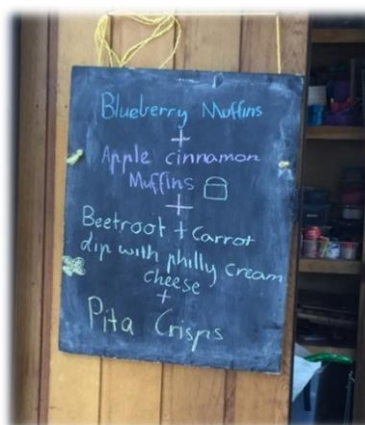 Blueberry Muffins
+
Apple cinnamon
Muffins
+
Beetroot + Carrot
dip with philly cream
cheese
+
Pita Crisps